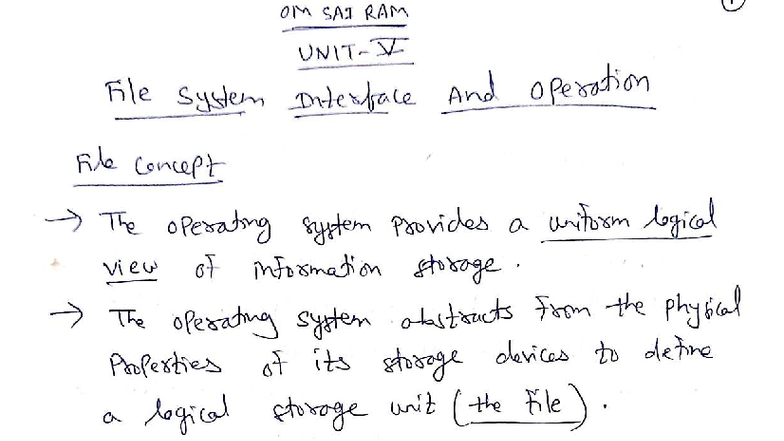 OM SAI RAM
UNIT-V
File System Interface And Operation
File Concept
→ The operating system provides a uniform logical
view of information storage.
→ The operating system abstracts from the physical
Properties of its storage devices to define
a logical storage unit (the file).